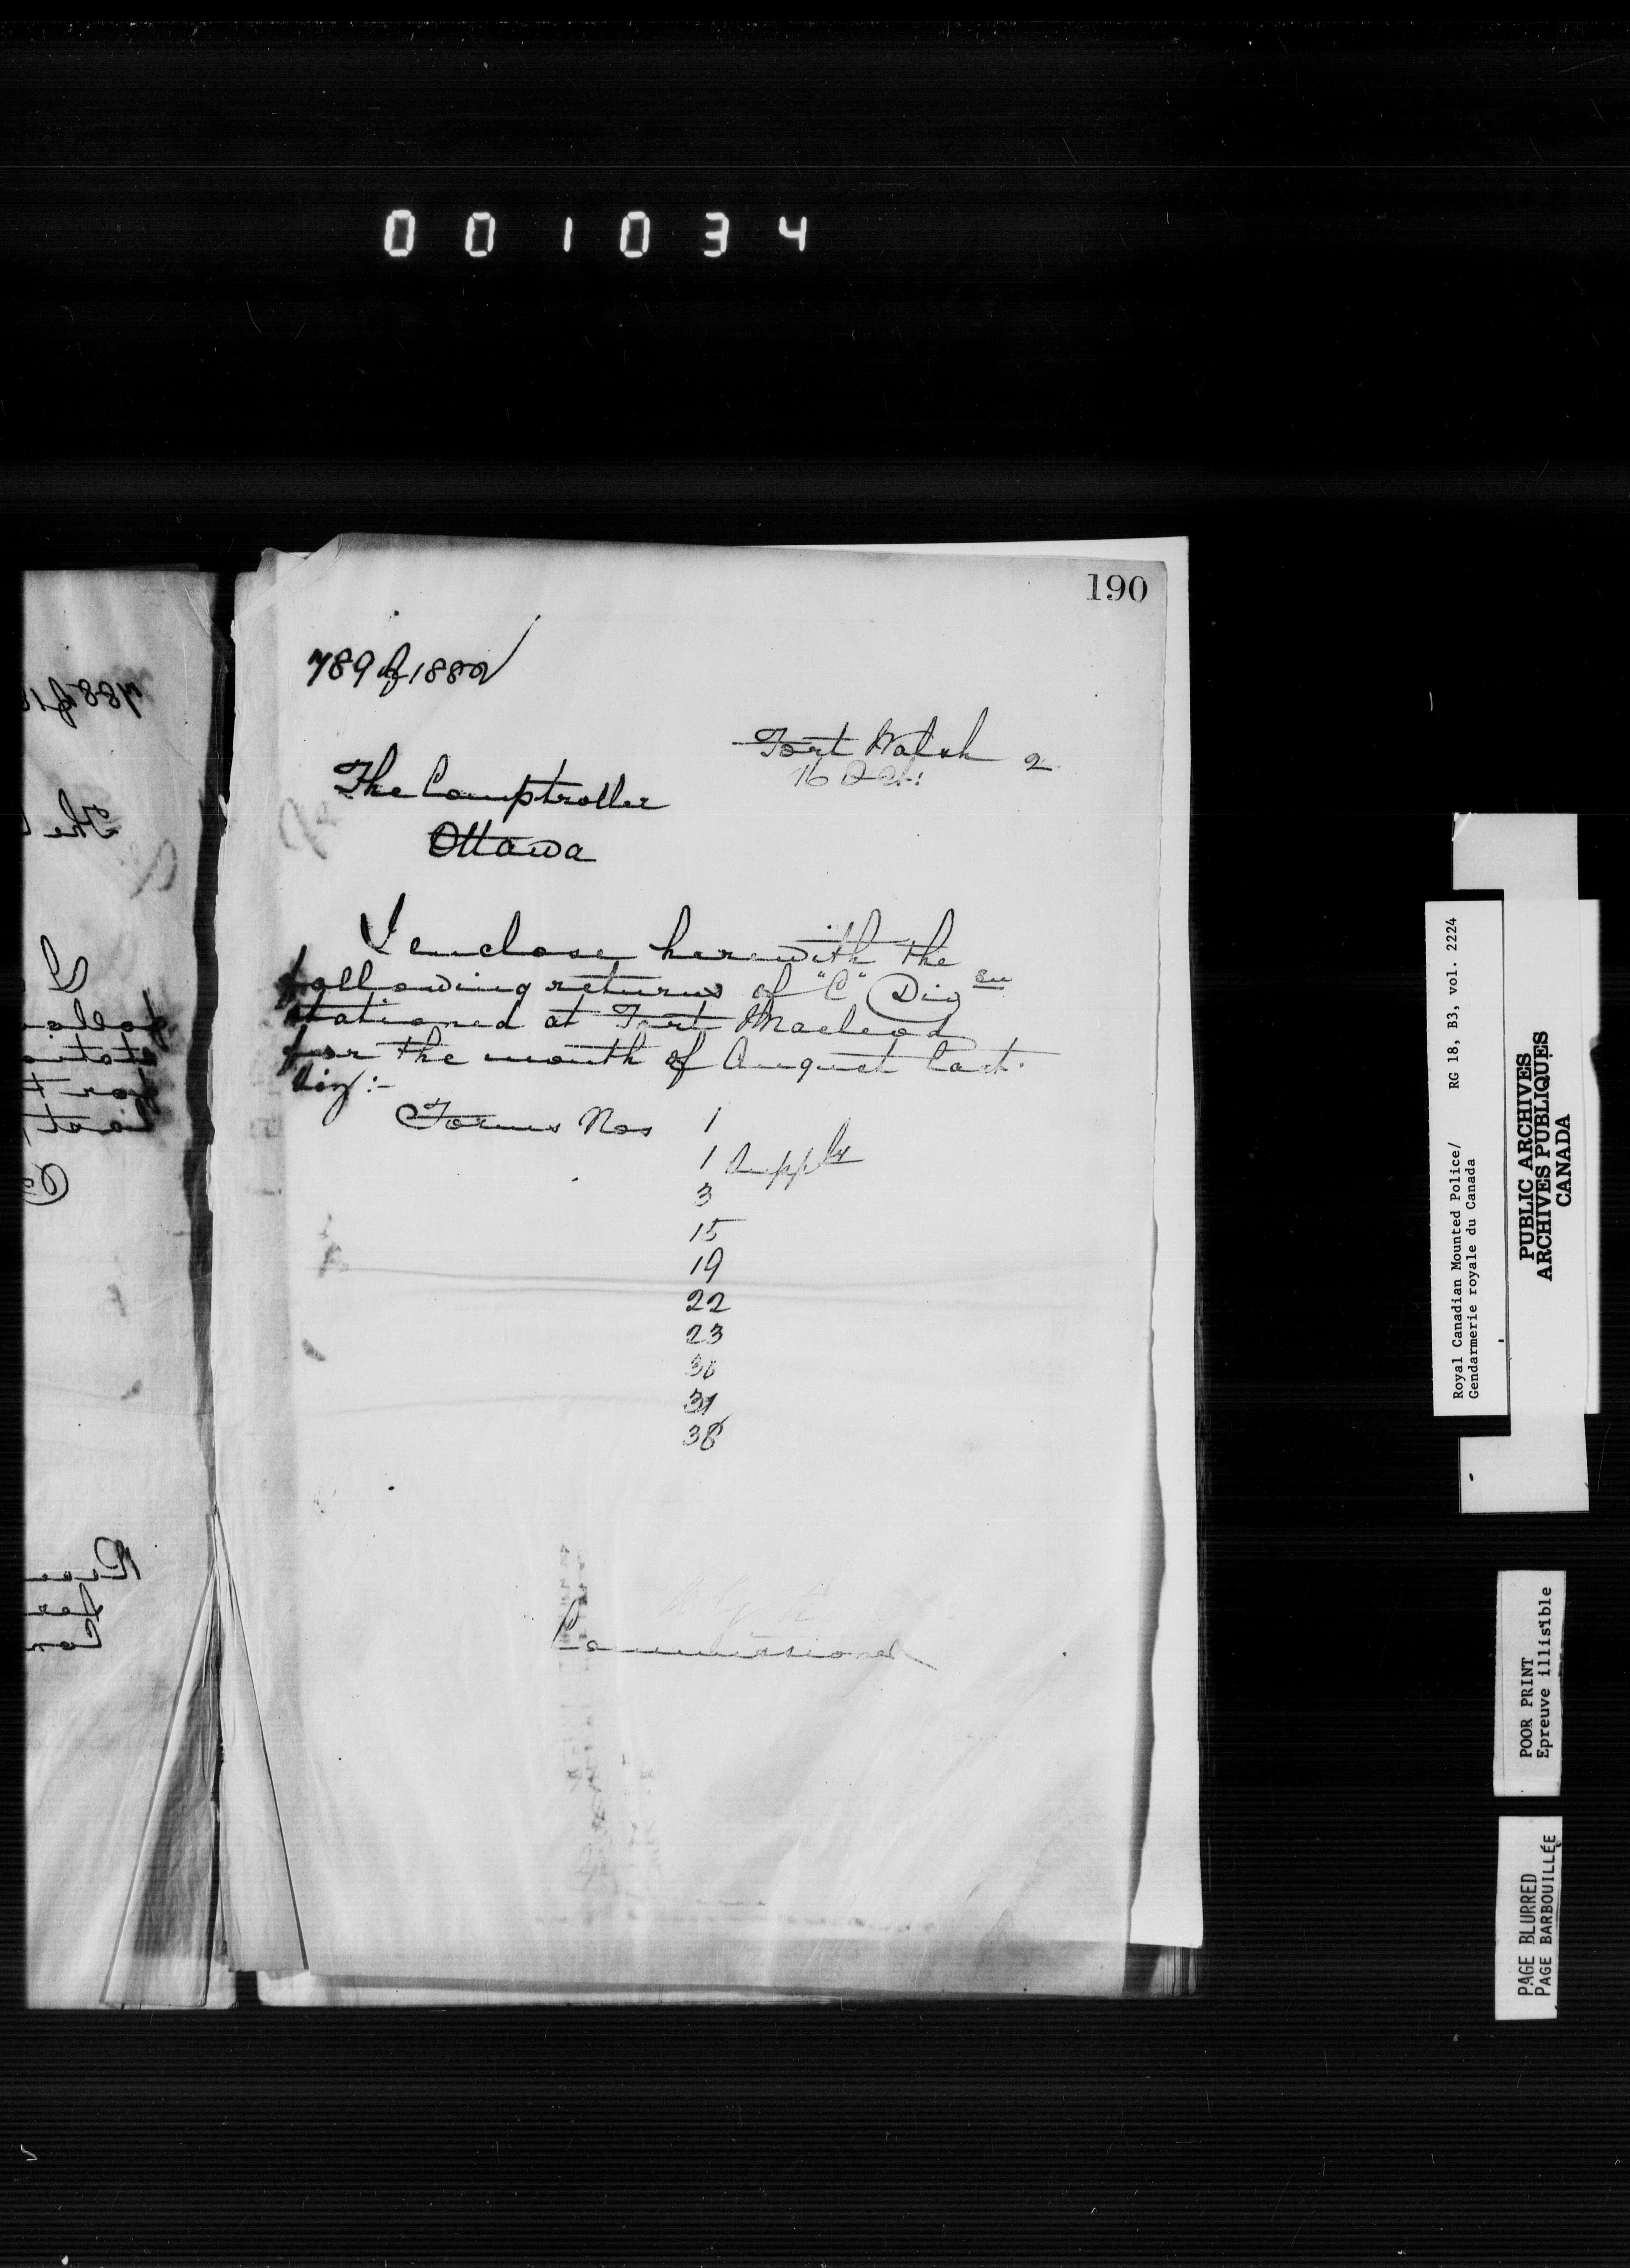 001034
190
789 of 1882
Fort Walsh 2
16 Oct:
The Comptroller
Ottawa
I enclose herewith the
following returns of "C" Divsn
stationed at Fort Macleod
for the month of August last.
Viz:-
Forms Nos 1
1 Supply
3
15
19
22
23
30
31
38
Commissioner
Royal Canadian Mounted Police/ RG 18, B3, vol. 2224
Gendarmerie royale du Canada
PUBLIC ARCHIVES
ARCHIVES PUBLIQUES
CANADA
POOR PRINT
Epreuve illisible
PAGE BLURRED
PAGE BARBOUILLÉE